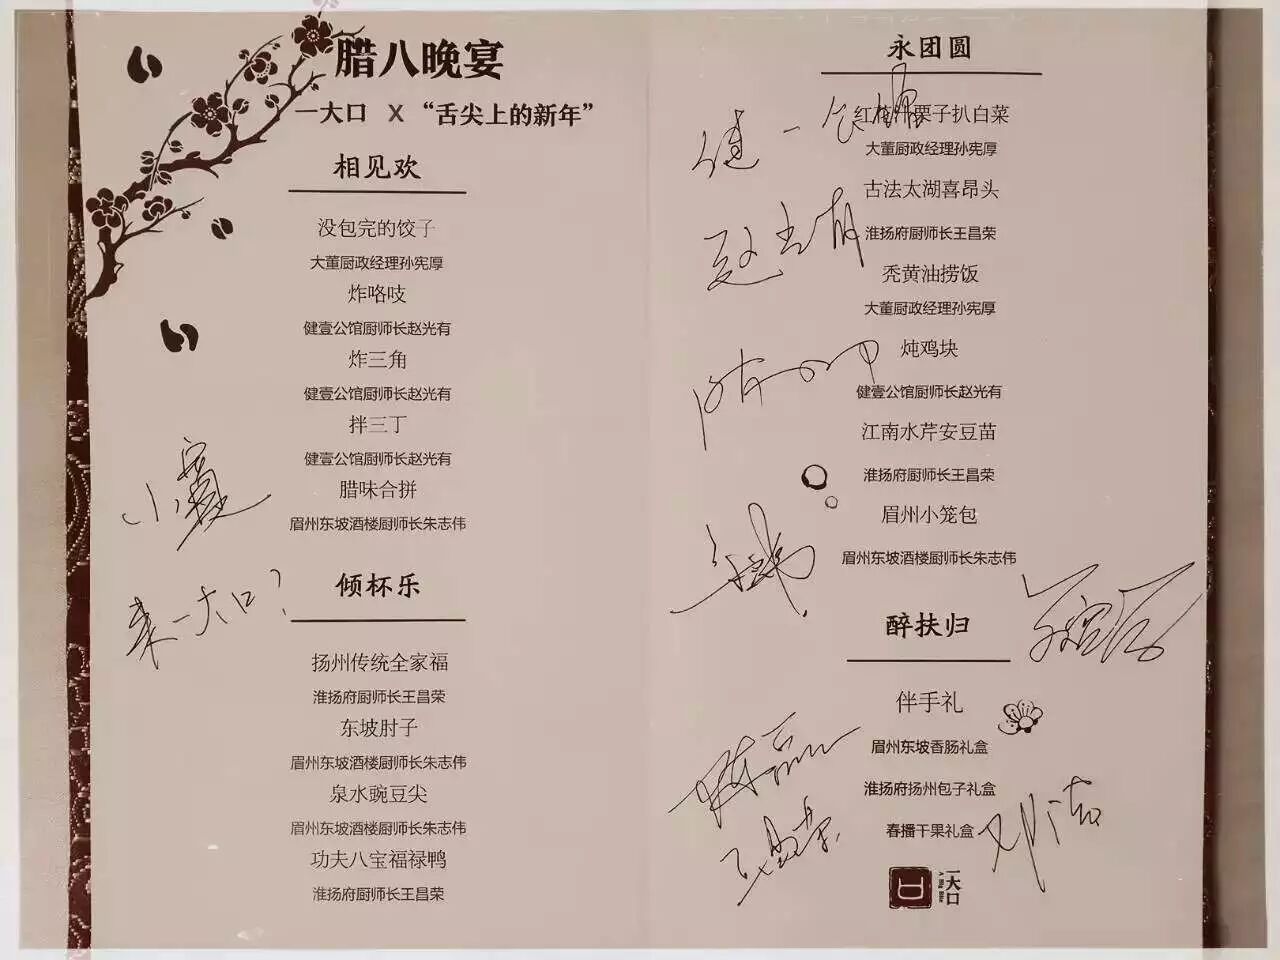 腊八晚宴
一大口 X “舌尖上的新年”
相见欢
没包完的饺子
大董厨政经理孙宪厚
炸咯吱
健壹公馆厨师长赵光有
炸三角
健壹公馆厨师长赵光有
拌三丁
健壹公馆厨师长赵光有
腊味合拼
眉州东坡酒楼厨师长朱志伟
小宽
来一大口?
倾杯乐
扬州传统全家福
淮扬府厨师长王昌荣
东坡肘子
眉州东坡酒楼厨师长朱志伟
泉水豌豆尖
眉州东坡酒楼厨师长朱志伟
功夫八宝福禄鸭
淮扬府厨师长王昌荣
永团圆
红花汁栗子扒白菜
大董厨政经理孙宪厚
健一公馆
古法太湖喜昂头
淮扬府厨师长王昌荣
赵光有
秃黄油捞饭
大董厨政经理孙宪厚
炖鸡块
健壹公馆厨师长赵光有
江南水芹安豆苗
淮扬府厨师长王昌荣
眉州小笼包
眉州东坡酒楼厨师长朱志伟
醉扶归
伴手礼
眉州东坡香肠礼盒
淮扬府扬州包子礼盒
春播干果礼盒
陈磊
王昌荣
一大口
A Big Bite